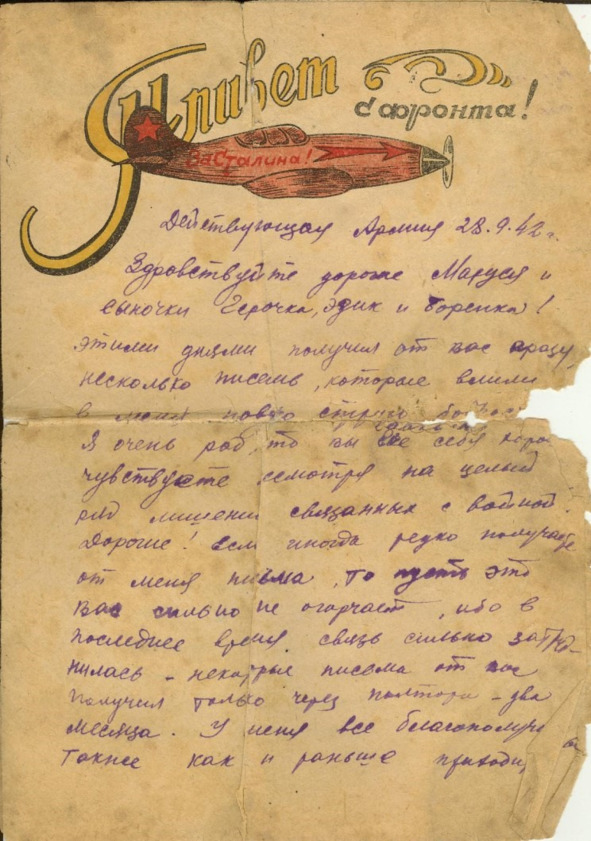 Привет
с фронта!
За Сталина!
Действующая Армия 28.9.42 г.
Здравствуйте дорогие Маруся и
сыночки Герочка, Эдик и Боренка!
этими днями получил от вас сразу
несколько писемь, которые влили
в меня новую струю
Я очень рад, что вы все себя
чувствуете смотря на целый
ряд лишений связанных с войной.
Дорогие! если иногда редко получаете
от меня письма, то пусть это
вас сильно не огорчает, ибо в
последнее время связь сильно затруд-
нилась - некоторые письма от вас
получил только через полтора - два
месяца. У меня все благополучн
также как и раньше приходи